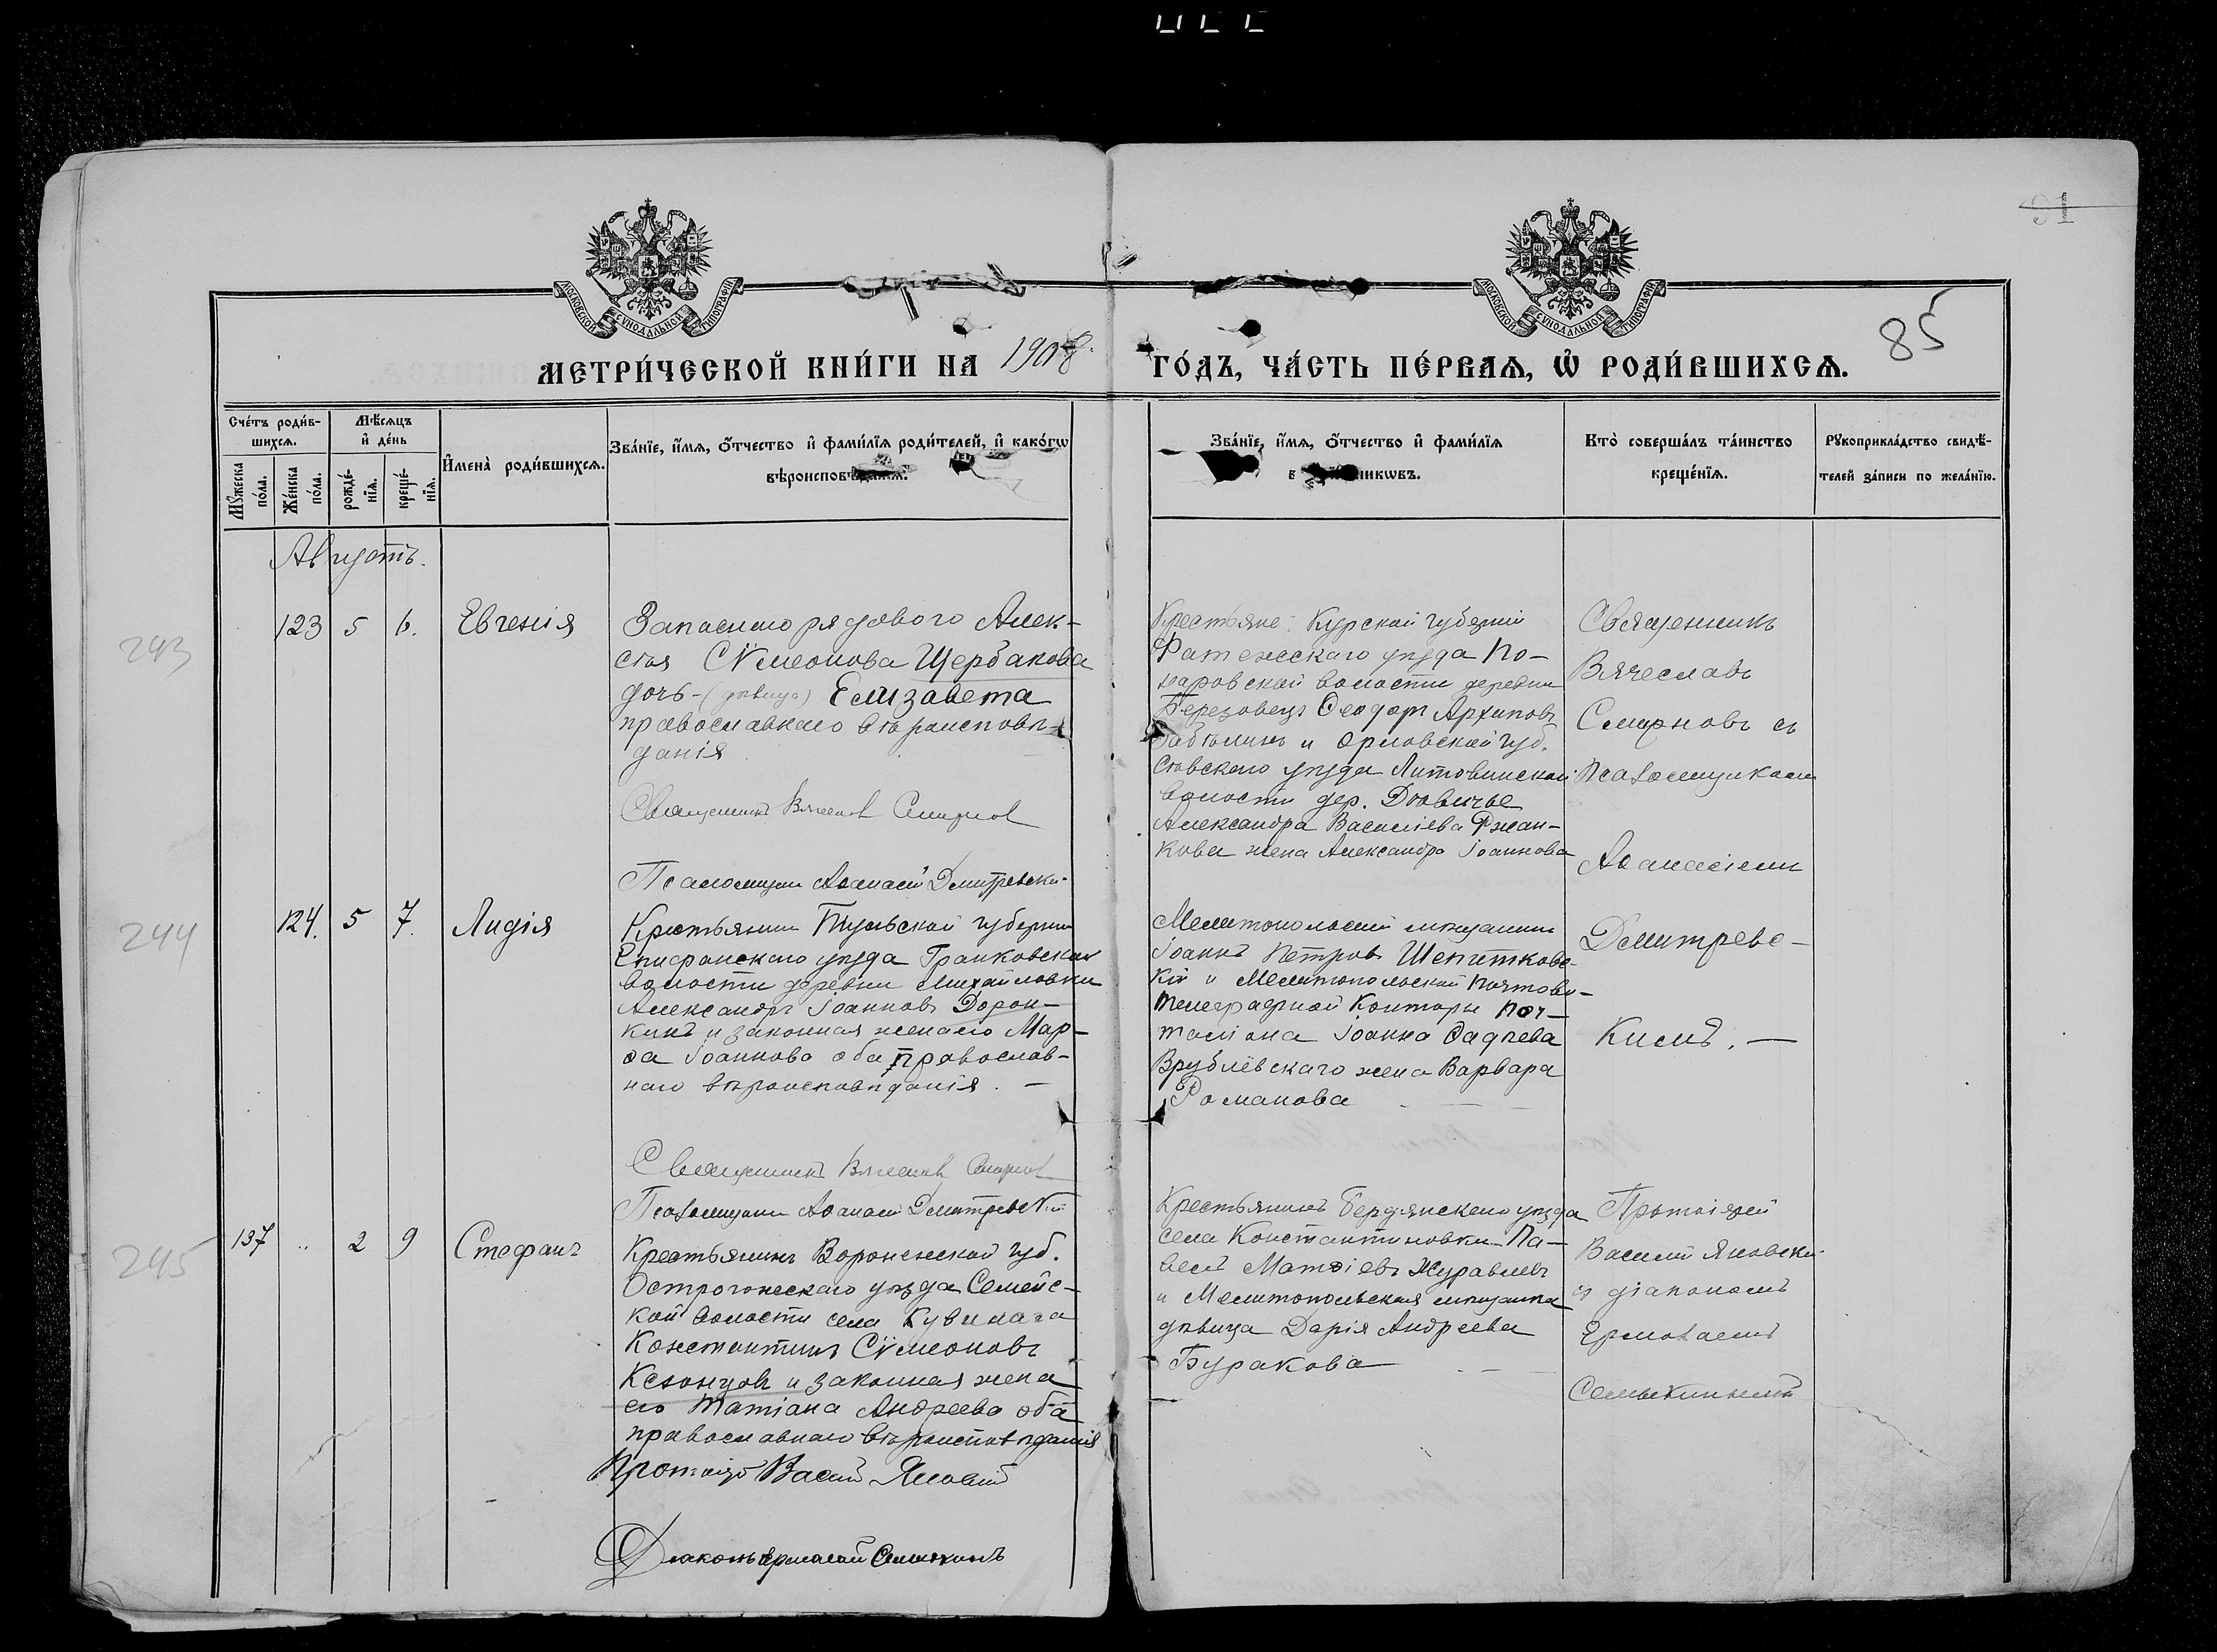 91
МОСКОВСКОЙ СУНОДАЛЬНОЙ ТИПОГРАФІИ
МОСКОВСКОЙ СУНОДАЛЬНОЙ ТИПОГРАФІИ
85
МЕТРИ́ЧЕСКОЙ КНИ́ГИ НА 1908 ГО́ДЪ, ЧА́СТЬ ПЕ́РВАѦ, Ѡ РОДИ́ВШИХСѦ.
Сче́тъ роди́в-
шихсѧ.
Мꙋ́жеска по́ла.
Же́нска по́ла.
Мѣ́сѧцъ
и҆ де́нь
рожде́-нїѧ.
креще́-нїѧ.
И҆мена̀ роди́вшихсѧ.
Зва́нїе, и҆́мѧ, ѻ҆́тчество и҆ фами́лїѧ роди́телей, и҆ како́гѡ
Зва́нїе, и҆́мѧ, ѻ҆́тчество и҆ фами́лїѧ
Кто̀ соверша́лъ та́инство
креще́нїѧ.
Рꙋкоприкла́дство свидѣ́-
телей за́писи по жела́нїю.
Августъ.
243
123 5 6. Евгенія
Запаснаго рядового Алек-
сѣя Сѵмеонова Щербакова
дочь - (дѣвица) Елизавета
православнаго вѣроисповѣ-
данія
Священникъ Вячеслав Смирнов
Псаломщикъ Аѳанасій Дмитревскій
Крестьяне: Курской губерніи
Фатежскаго уѣзда По-
наровской волости деревни
Березовецъ Ѳеодоръ Архиповъ
и Орловской губ.
уѣзда Литовинской
волости дер. Довичье
Александра Василіева Ржан-
кова жена Александра Іоаннова
Священникъ
Вячеславъ
Смирновъ съ
Псаломщикомъ
Аѳанасіемъ
Дмитревс-
кимъ. —
244
124. 5 7. Лидія
Крестьянинъ Тульской губерніи
Епифанскаго уѣзда Гранковской
волости деревни Михайловки
Александръ Іоанновъ Дорон-
кинъ и законная жена его Мар-
ѳа Іоаннова оба православ-
наго вѣроисповѣданія. —
Священникъ Вячеслав Смирнов
Псаломщикъ Аѳанасій Дмитревскій
Мелитопольскій мѣщанинъ
Іоаннъ Петровъ Шепитковс-
кій и Мелитопольской почтово-
телеграфной конторы поч-
таліона Іоанна Ѳадѣева
Врублевскаго жена Варвара
Романова
245
137 " 2 9 Стефанъ
Крестьянинъ Воронежской губ.
Острогожскаго уѣзда Семейс-
кой волости села
Константинъ Сѵмеоновъ
и законная жена
его Татіана Андреева оба
православнаго вѣроисповѣданія
Протоіерей Василій Яновскій
Діаконъ Ермолай Семыкинъ
Крестьянинъ Бердянскаго уѣзда
села Константиновки Па-
велъ Матѳіевъ Журавлевъ
и Мелитопольская мѣщанка
дѣвица Дарія Андреева
Буракова
Протоіерей
Василій Яновскій
съ діакономъ
Ермолаемъ
Семыкинымъ